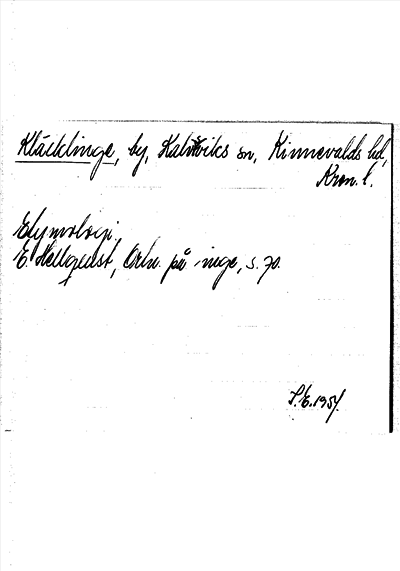 Kläcklinge, by, Kalvsviks sn, Kinnevalds hd,
Kron. l.
Etymologi.
E. Hellquist, Ortn. på inge, s. 70.
S.E. 1951.